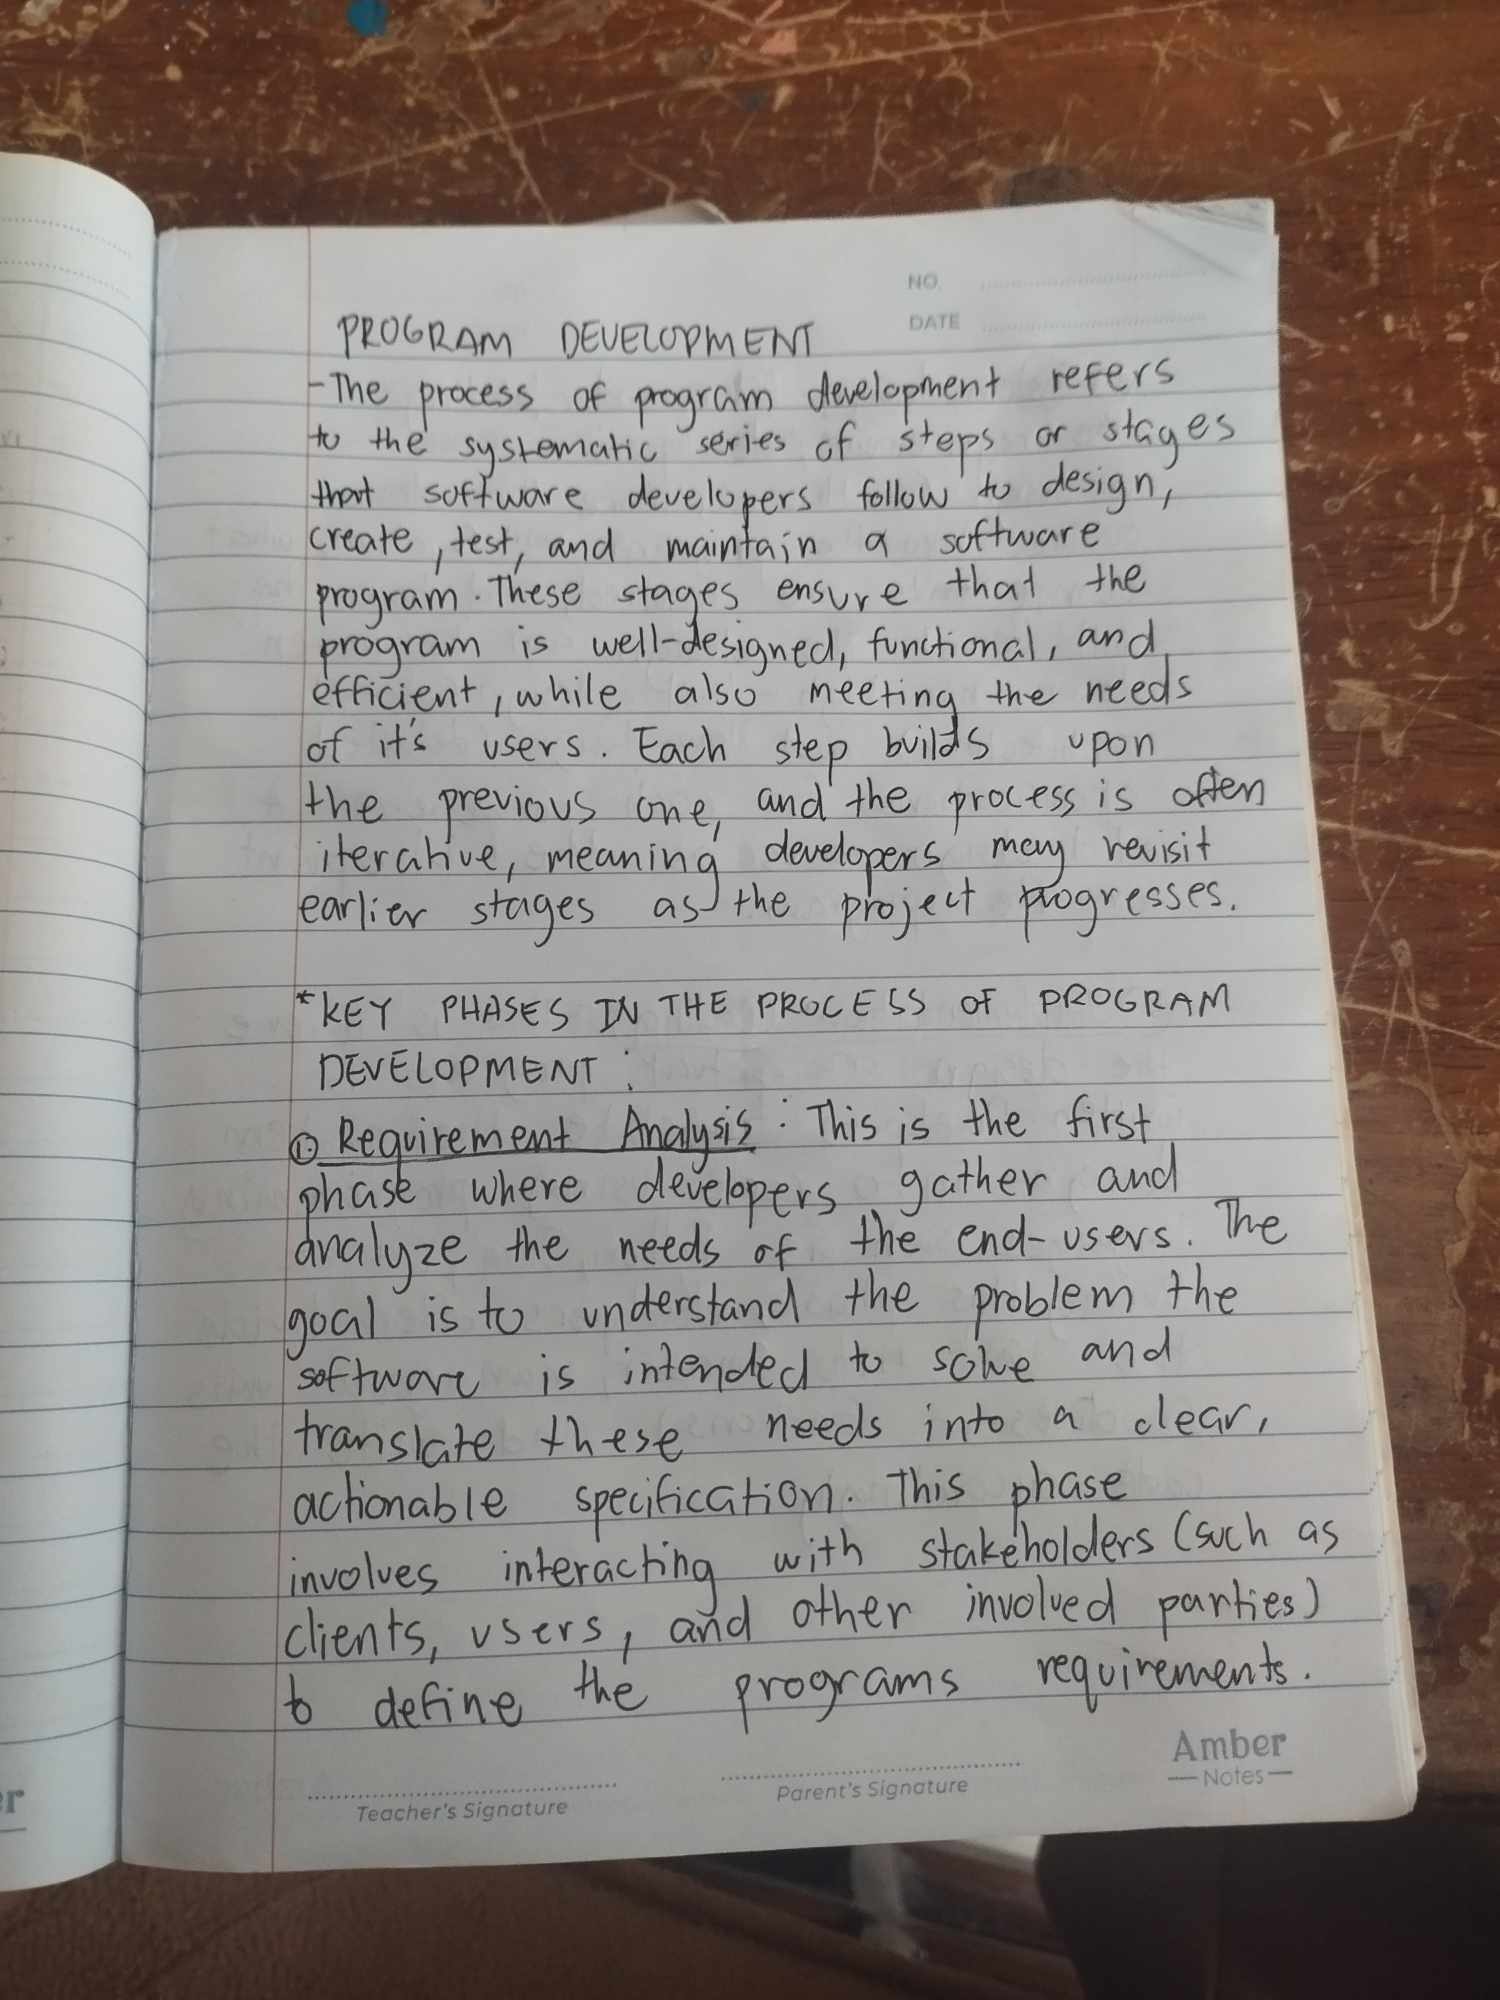 NO.
DATE
PROGRAM DEVELOPMENT
-The process of program development refers
to the systematic series of steps or stages
that software developers follow to design,
create, test, and maintain a software
program. These stages ensure that the
program is well-designed, functional, and
efficient, while also meeting the needs
of it's users. Each step builds upon
the previous one, and the process is often
iterative, meaning developers may revisit
earlier stages as the project progresses.
*KEY PHASES IN THE PROCESS OF PROGRAM
DEVELOPMENT:
① Requirement Analysis: This is the first
phase where developers gather and
analyze the needs of the end-users. The
goal is to understand the problem the
software is intended to solve and
translate these needs into a clear,
actionable specification. This phase
involves interacting with stakeholders (such as
clients, users, and other involved parties)
to define the programs requirements.
Teacher's Signature
Parent's Signature
Amber
Notes